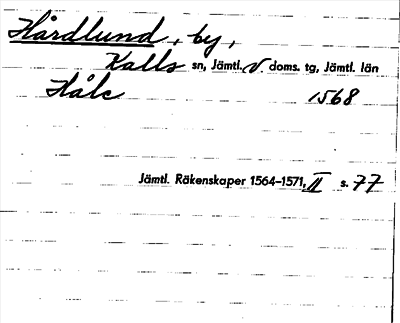 Hårdlund, by,
Kalls sn, Jämtl. V. doms. tg, Jämtl. län
Hålc 1568
Jämtl. Räkenskaper 1564–1571, II s. 77